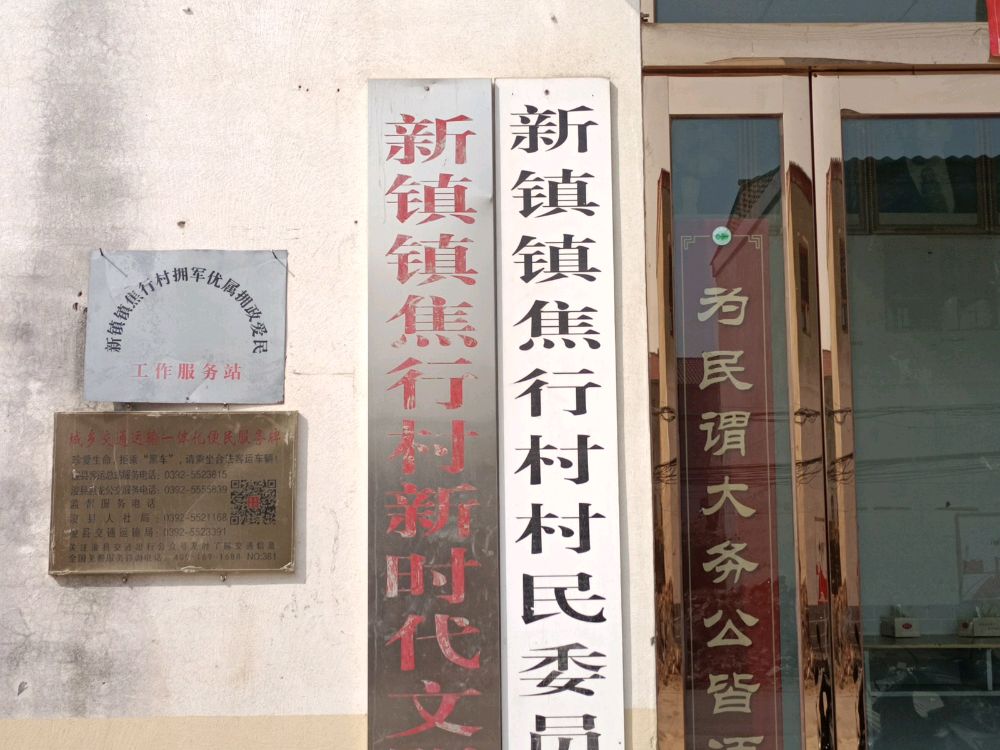 新镇镇焦行村拥军优属拥政爱民
工作服务站
城乡交通运输一体化便民服务牌
珍爱生命，拒乘“黑车”，请乘坐合法客运车辆！
浚县客运总站服务电话：0392-5523815
服务电话：0392-5555839
监督服务电话
浚县人社局：0392-5521168
浚县交通运输局：0392-5523391
NO:381
新镇镇焦行村新时代文
新镇镇焦行村村民委员
为民谓大务公皆